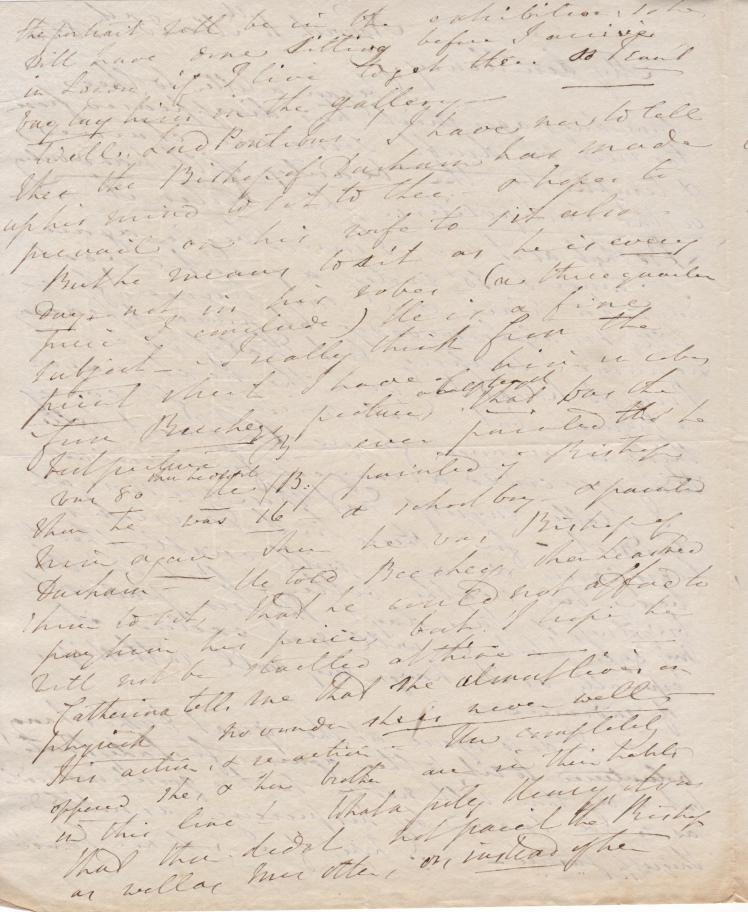 The portrait will be in the exhibition, & he
will have done sitting before I arrive
in London, if I live to get there. So I can't
buy him in the gallery—
I have now to tell
thee the Bishop of Durham has made
up his mind to sit to thee, & hopes to
prevail on his wife to sit also.
But he means to sit as he is every
day, not in his robes (a three quarter
piece I conclude.) He is a fine
subject— I really think from the
print which I have of him in robes
from Beechey picture, that was the
best picture B. ever painted tho he
was 80 He (B) painted Bishop
when he was 16 & a schoolboy & painted
him again when he was Bishop of
Durham— He told Beechey, when he asked
him to sit, that he could not afford to
pay him his price, but I hope he
will not be startled at thine—
Catherine tells me that she almost lives on
physick no wonder she is never well—
His action & reaction— How completely
opposed she & her brother are in their habits
in this line! What a pity Henry
that thou didst not paint the Bishop
as well as Mrs Otter, or instead of her